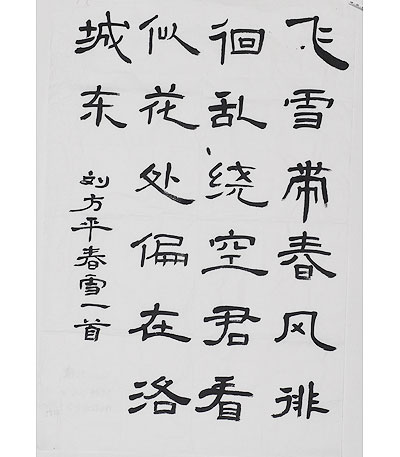 飞雪带春风徘
徊乱绕空君看
似花处偏在洛
城东
刘方平春雪一首